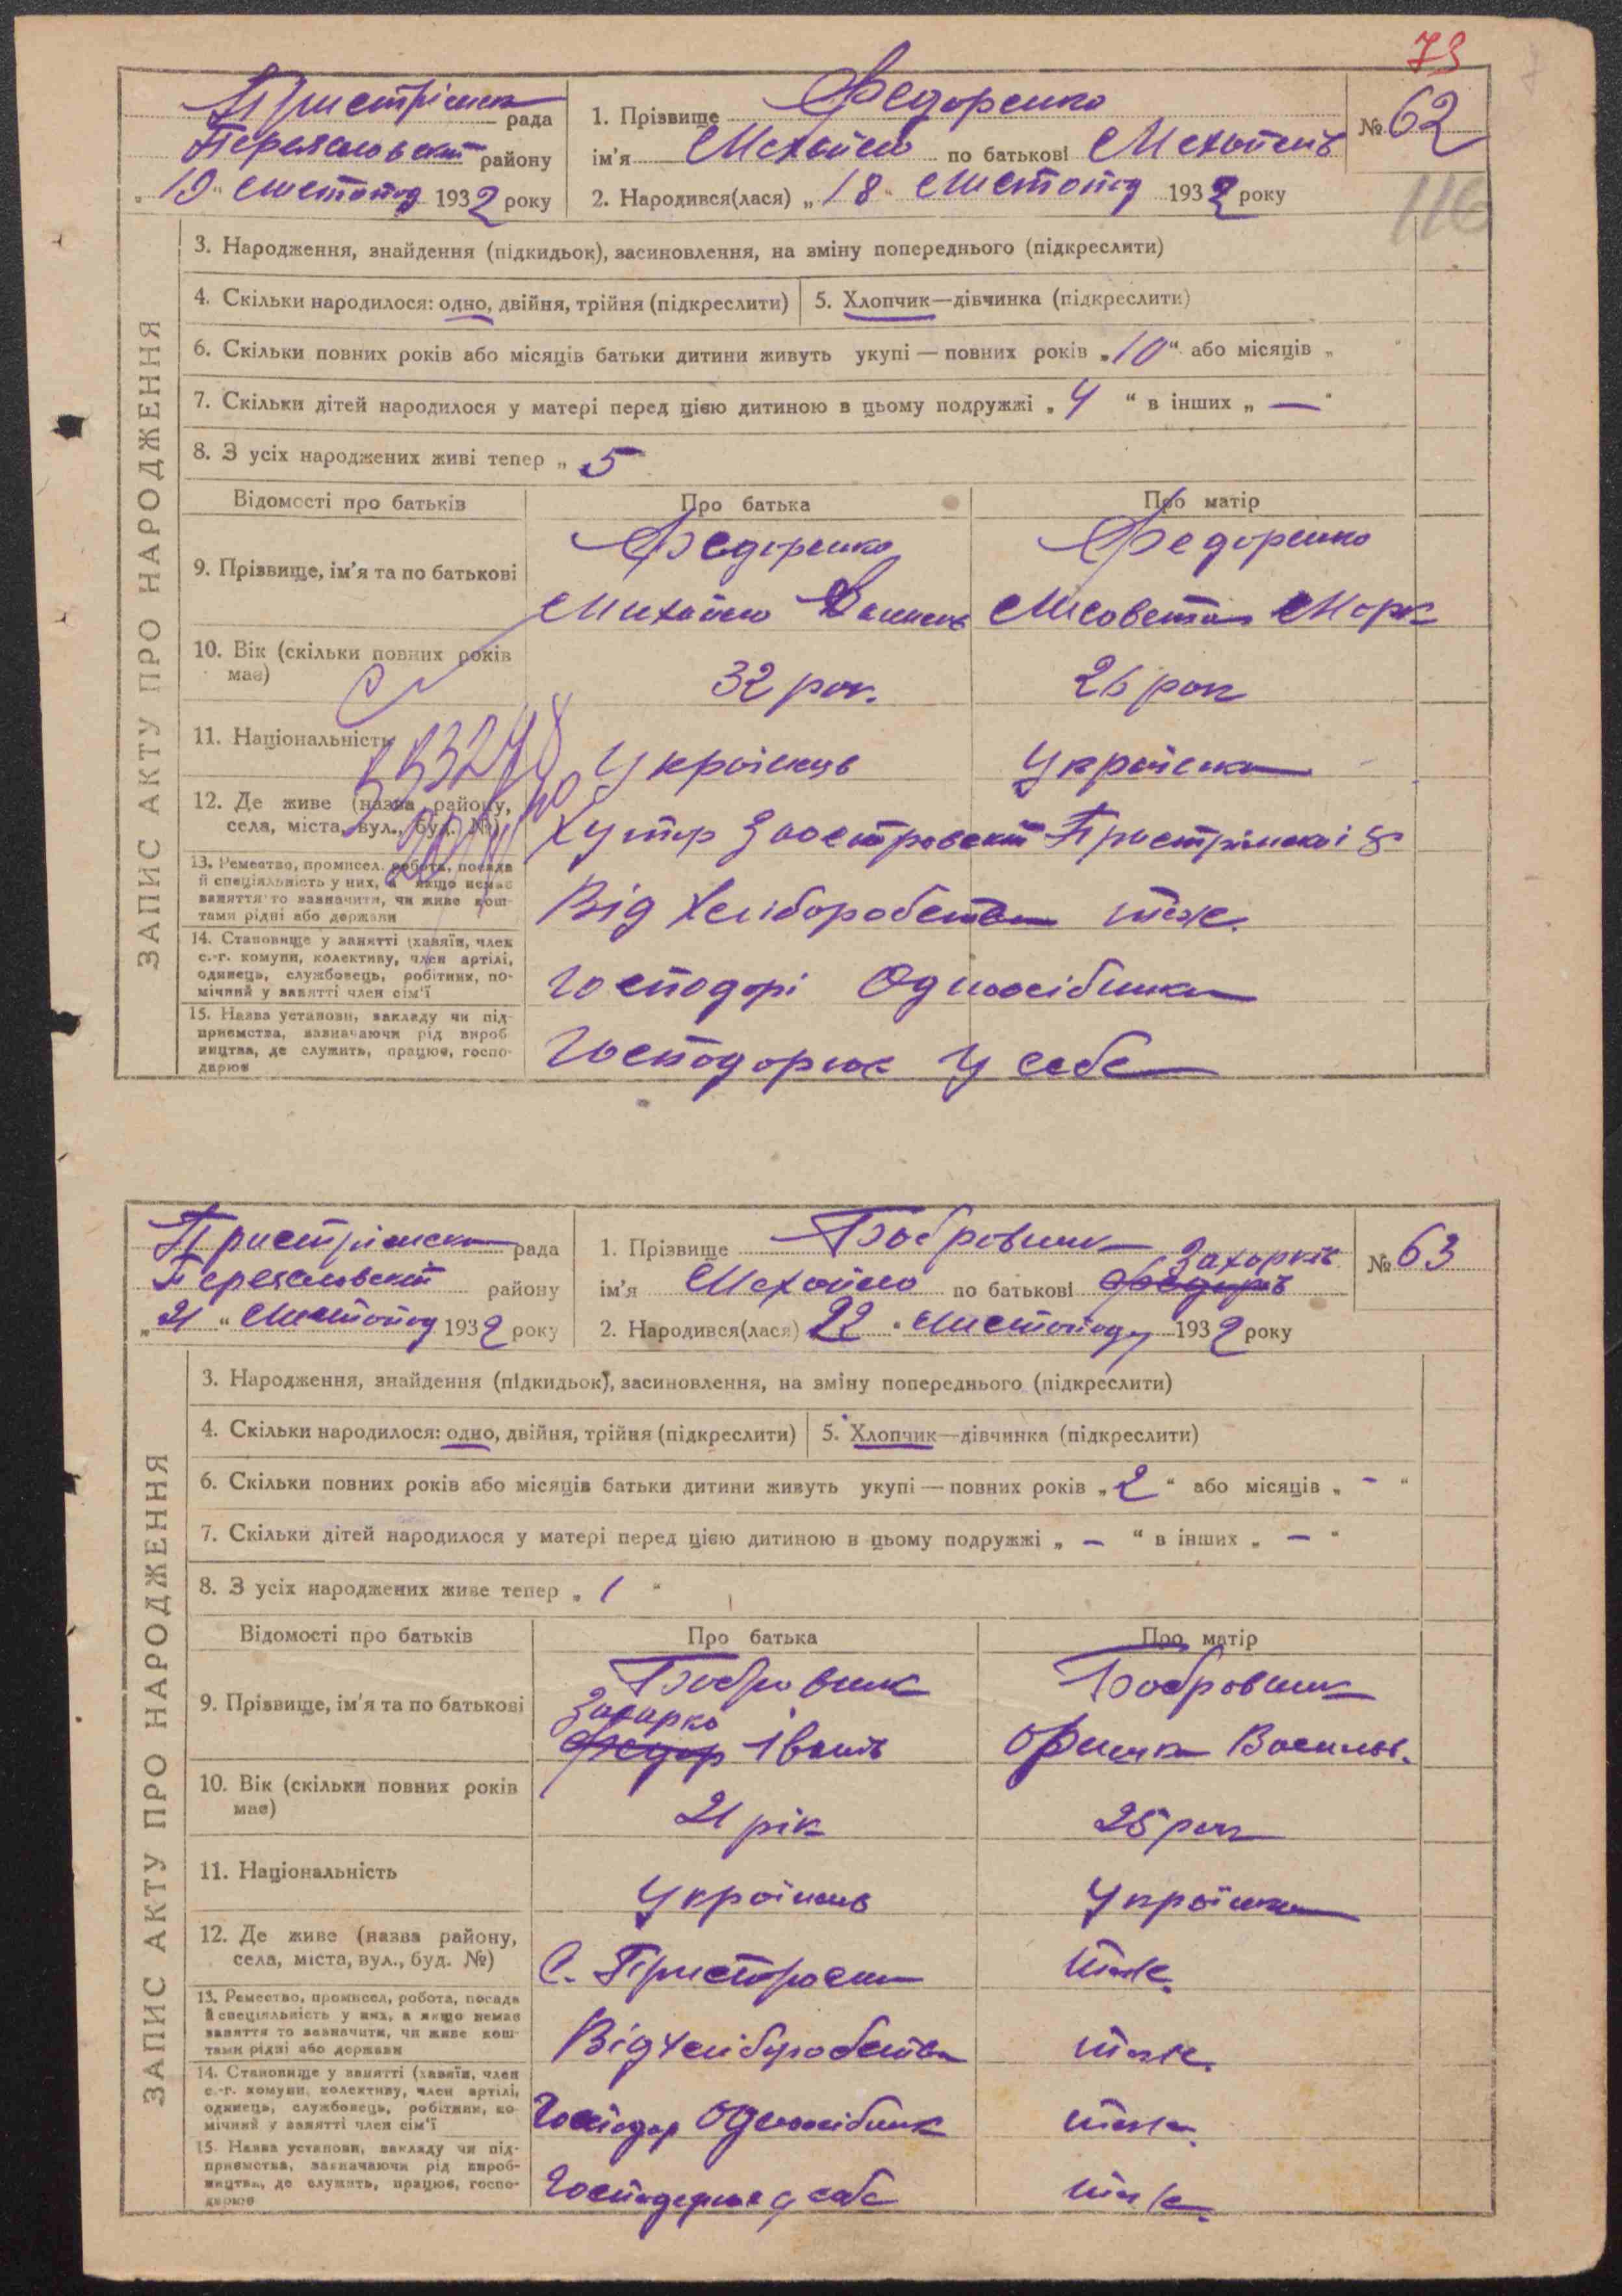 73
Пристрімск рада
Переяславський району
"19" листопад 1932 року
1. Прізвище Федоренко
ім'я Михайло по батькові Михайлів
2. Народився(лася) "18" листопад 1932 року
№ 62
116
ЗАПИС АКТУ ПРО НАРОДЖЕННЯ
3. Народження, знайдення (підкидьок), засиновлення, на зміну попереднього (підкреслити)
4. Скільки народилося: одно, двійня, трійня (підкреслити) 5. Хлопчик—дівчинка (підкреслити)
6. Скільки повних років або місяців батьки дитини живуть укупі — повних років „10" або місяців „ "
7. Скільки дітей народилося у матері перед цією дитиною в цьому подружжі „4" в інших „—"
8. З усіх народжених живі тепер „5"
Відомості про батьків Про батька Про матір
9. Прізвище, ім'я та по батькові
Федоренко Федоренко
Михайло Лисовета Марк
10. Вік (скільки повних років має)
32 рок. 26 рок
11. Національність
Українець Українка
12. Де живе (назва району, села, міста, вул., буд. №)
Хутір Пристрімскоі
13. Ремество, промисел, робота, посада й спеціяльність у них, а якщо немає заняття то зазначити, чи живе коштами рідні або держави
Від хліборобства теж
14. Становище у занятті (хазяїн, член с.-г. комуни, колективу, член артілі, одинець, службовець, робітник, помічний у занятті член сім'ї
Господарі Одноосібника
15. Назва установи, закладу чи підприємства, зазначаючи рід виробництва, де служить, працює, господарює
Господорює у себе
Пристрімск рада
Переяславський району
"21" Листопад 1932 року
1. Прізвище Бобровник
ім'я Михайло по батькові Федорів Захарків
2. Народився(лася) 22 " листопаду 1932 року
№ 63
ЗАПИС АКТУ ПРО НАРОДЖЕННЯ
3. Народження, знайдення (підкидьок), засиновлення, на зміну попереднього (підкреслити)
4. Скільки народилося: одно, двійня, трійня (підкреслити) 5. Хлопчик—дівчинка (підкреслити)
6. Скільки повних років або місяців батьки дитини живуть укупі — повних років „2" або місяців „-"
7. Скільки дітей народилося у матері перед цією дитиною в цьому подружжі „-" в інших „-"
8. З усіх народжених живе тепер „1"
Відомості про батьків Про батька Про матір
9. Прізвище, ім'я та по батькові
Бобровник Бобровник
Захарко
Федор Іванів Оришка Васильов.
10. Вік (скільки повних років має)
21 рік 25 рок
11. Національність
Українець Українка
12. Де живе (назва району, села, міста, вул., буд. №)
С. Пристроми теж
13. Ремество, промисел, робота, посада й спеціяльність у них, а якщо немає заняття то зазначити, чи живе коштами рідні або держави
Від хліборобства теж
14. Становище у занятті (хазяїн, член с.-г. комуни, колективу, член артілі, одинець, службовець, робітник, помічний у занятті член сім'ї
Господар Одноосібник теж
15. Назва установи, закладу чи підприємства, зазначаючи рід виробництва, де служить, працює, господарює
Господорює у себе теж